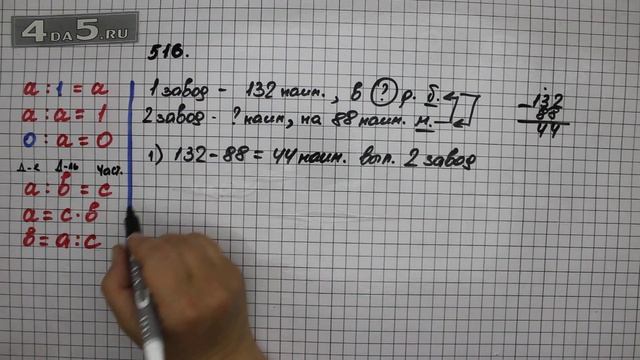 4DA5.RU
516.
a : 1 = a
a : a = 1
0 : a = 0
Д-е Д-ль Част.
a : b = c
a = c · b
b = a : c
1 завод - 132 наим., в ? р. б.
2 завод - ? наим, на 88 наим. м.
1) 132 - 88 = 44 наим. вып. 2 завод
132
- 88
44